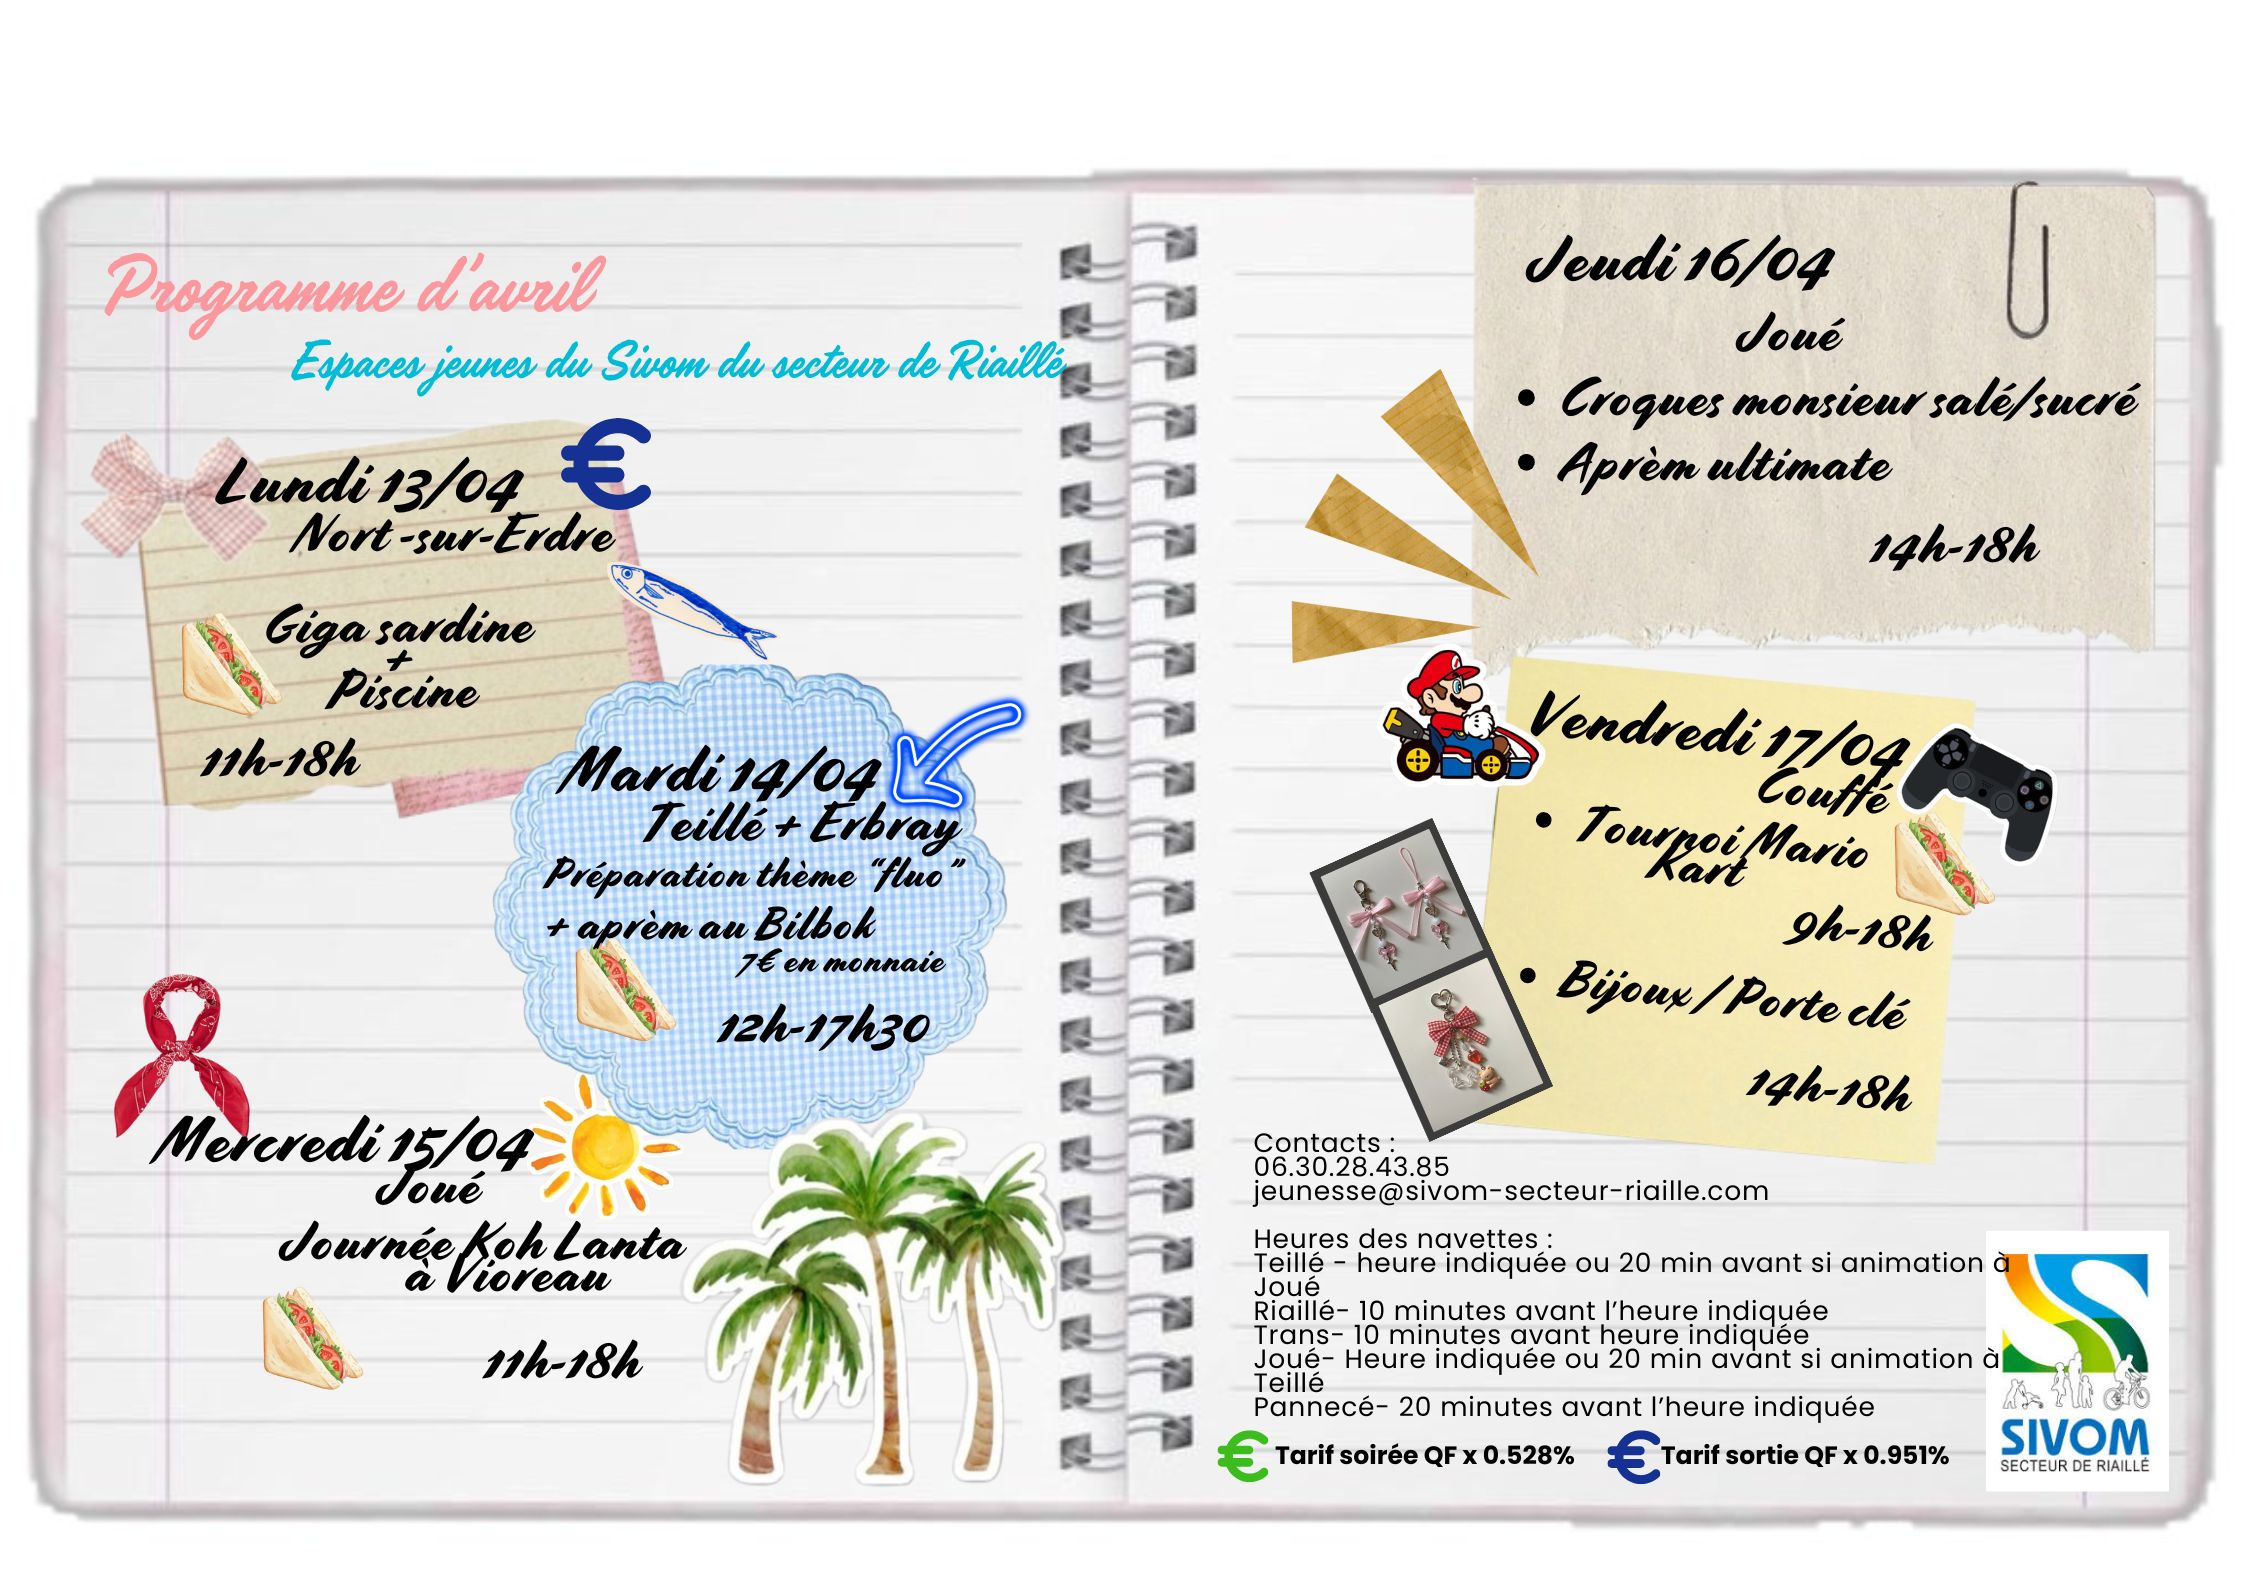 Programme d'avril
Espaces jeunes du Sivom du secteur de Riaillé
Lundi 13/04 €
Nort -sur-Erdre
Giga sardine
+
Piscine
11h-18h
Mardi 14/04
Teillé + Erbray
Préparation thème "fluo"
+ aprèm au Bilbok
7€ en monnaie
12h-17h30
Mercredi 15/04
Joué
Journée Koh Lanta
à Vioreau
11h-18h
Jeudi 16/04
Joué
• Croques monsieur salé/sucré
• Aprèm ultimate
14h-18h
Vendredi 17/04
Couffé
• Tournoi Mario
Kart
9h-18h
• Bijoux / Porte clé
14h-18h
Contacts :
06.30.28.43.85
jeunesse@sivom-secteur-riaille.com
Heures des navettes :
Teillé - heure indiquée ou 20 min avant si animation à
Joué
Riaillé- 10 minutes avant l'heure indiquée
Trans- 10 minutes avant heure indiquée
Joué- Heure indiquée ou 20 min avant si animation à
Teillé
Pannecé- 20 minutes avant l'heure indiquée
€ Tarif soirée QF x 0.528% € Tarif sortie QF x 0.951%
SIVOM
SECTEUR DE RIAILLÉ